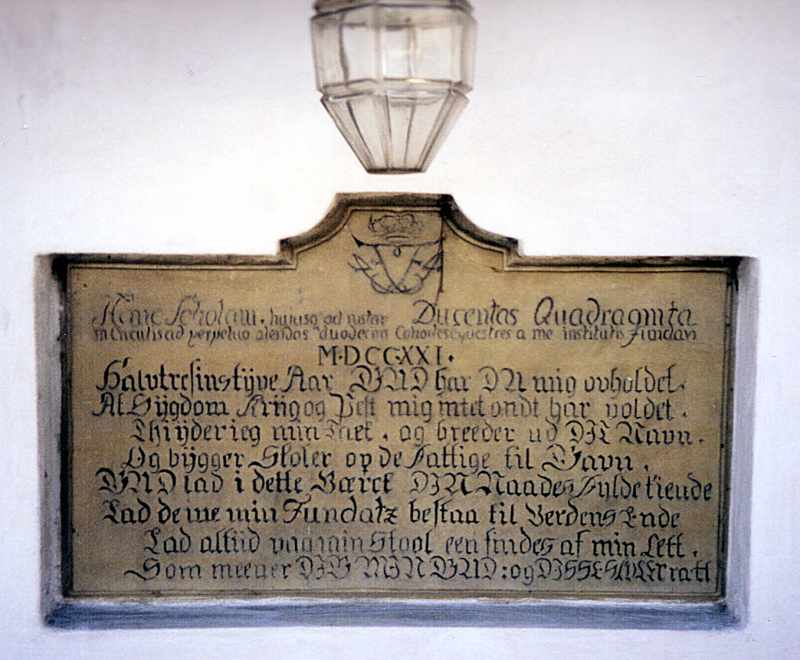 Hanc Scholam, hujusq ad instar Ducentas Quadraginta
in Cunctis ad perpetuo alendos duodecim Cohortes Equestres a me instituto Fundavi
M.DCC.XXI.
Halvtresinstÿve Aar GUD har DU mig opholdet.
At Sÿgdom Kriig og Pest mig intet ondt har voldet.
Thi ÿder ieg min Tack. og breeder ud DIT Navn.
Og bÿgger Skoler op de Fattige til Gavn.
GUD lad i dette Værck DIN Naades Fylde kiende
Lad denne min Fundatz bestaa til Verdens Ende
Lad altiid paa min Stool een findes af min Ætt.
Som meener DIG MIN GUD: og DISSE SKOLER rætt